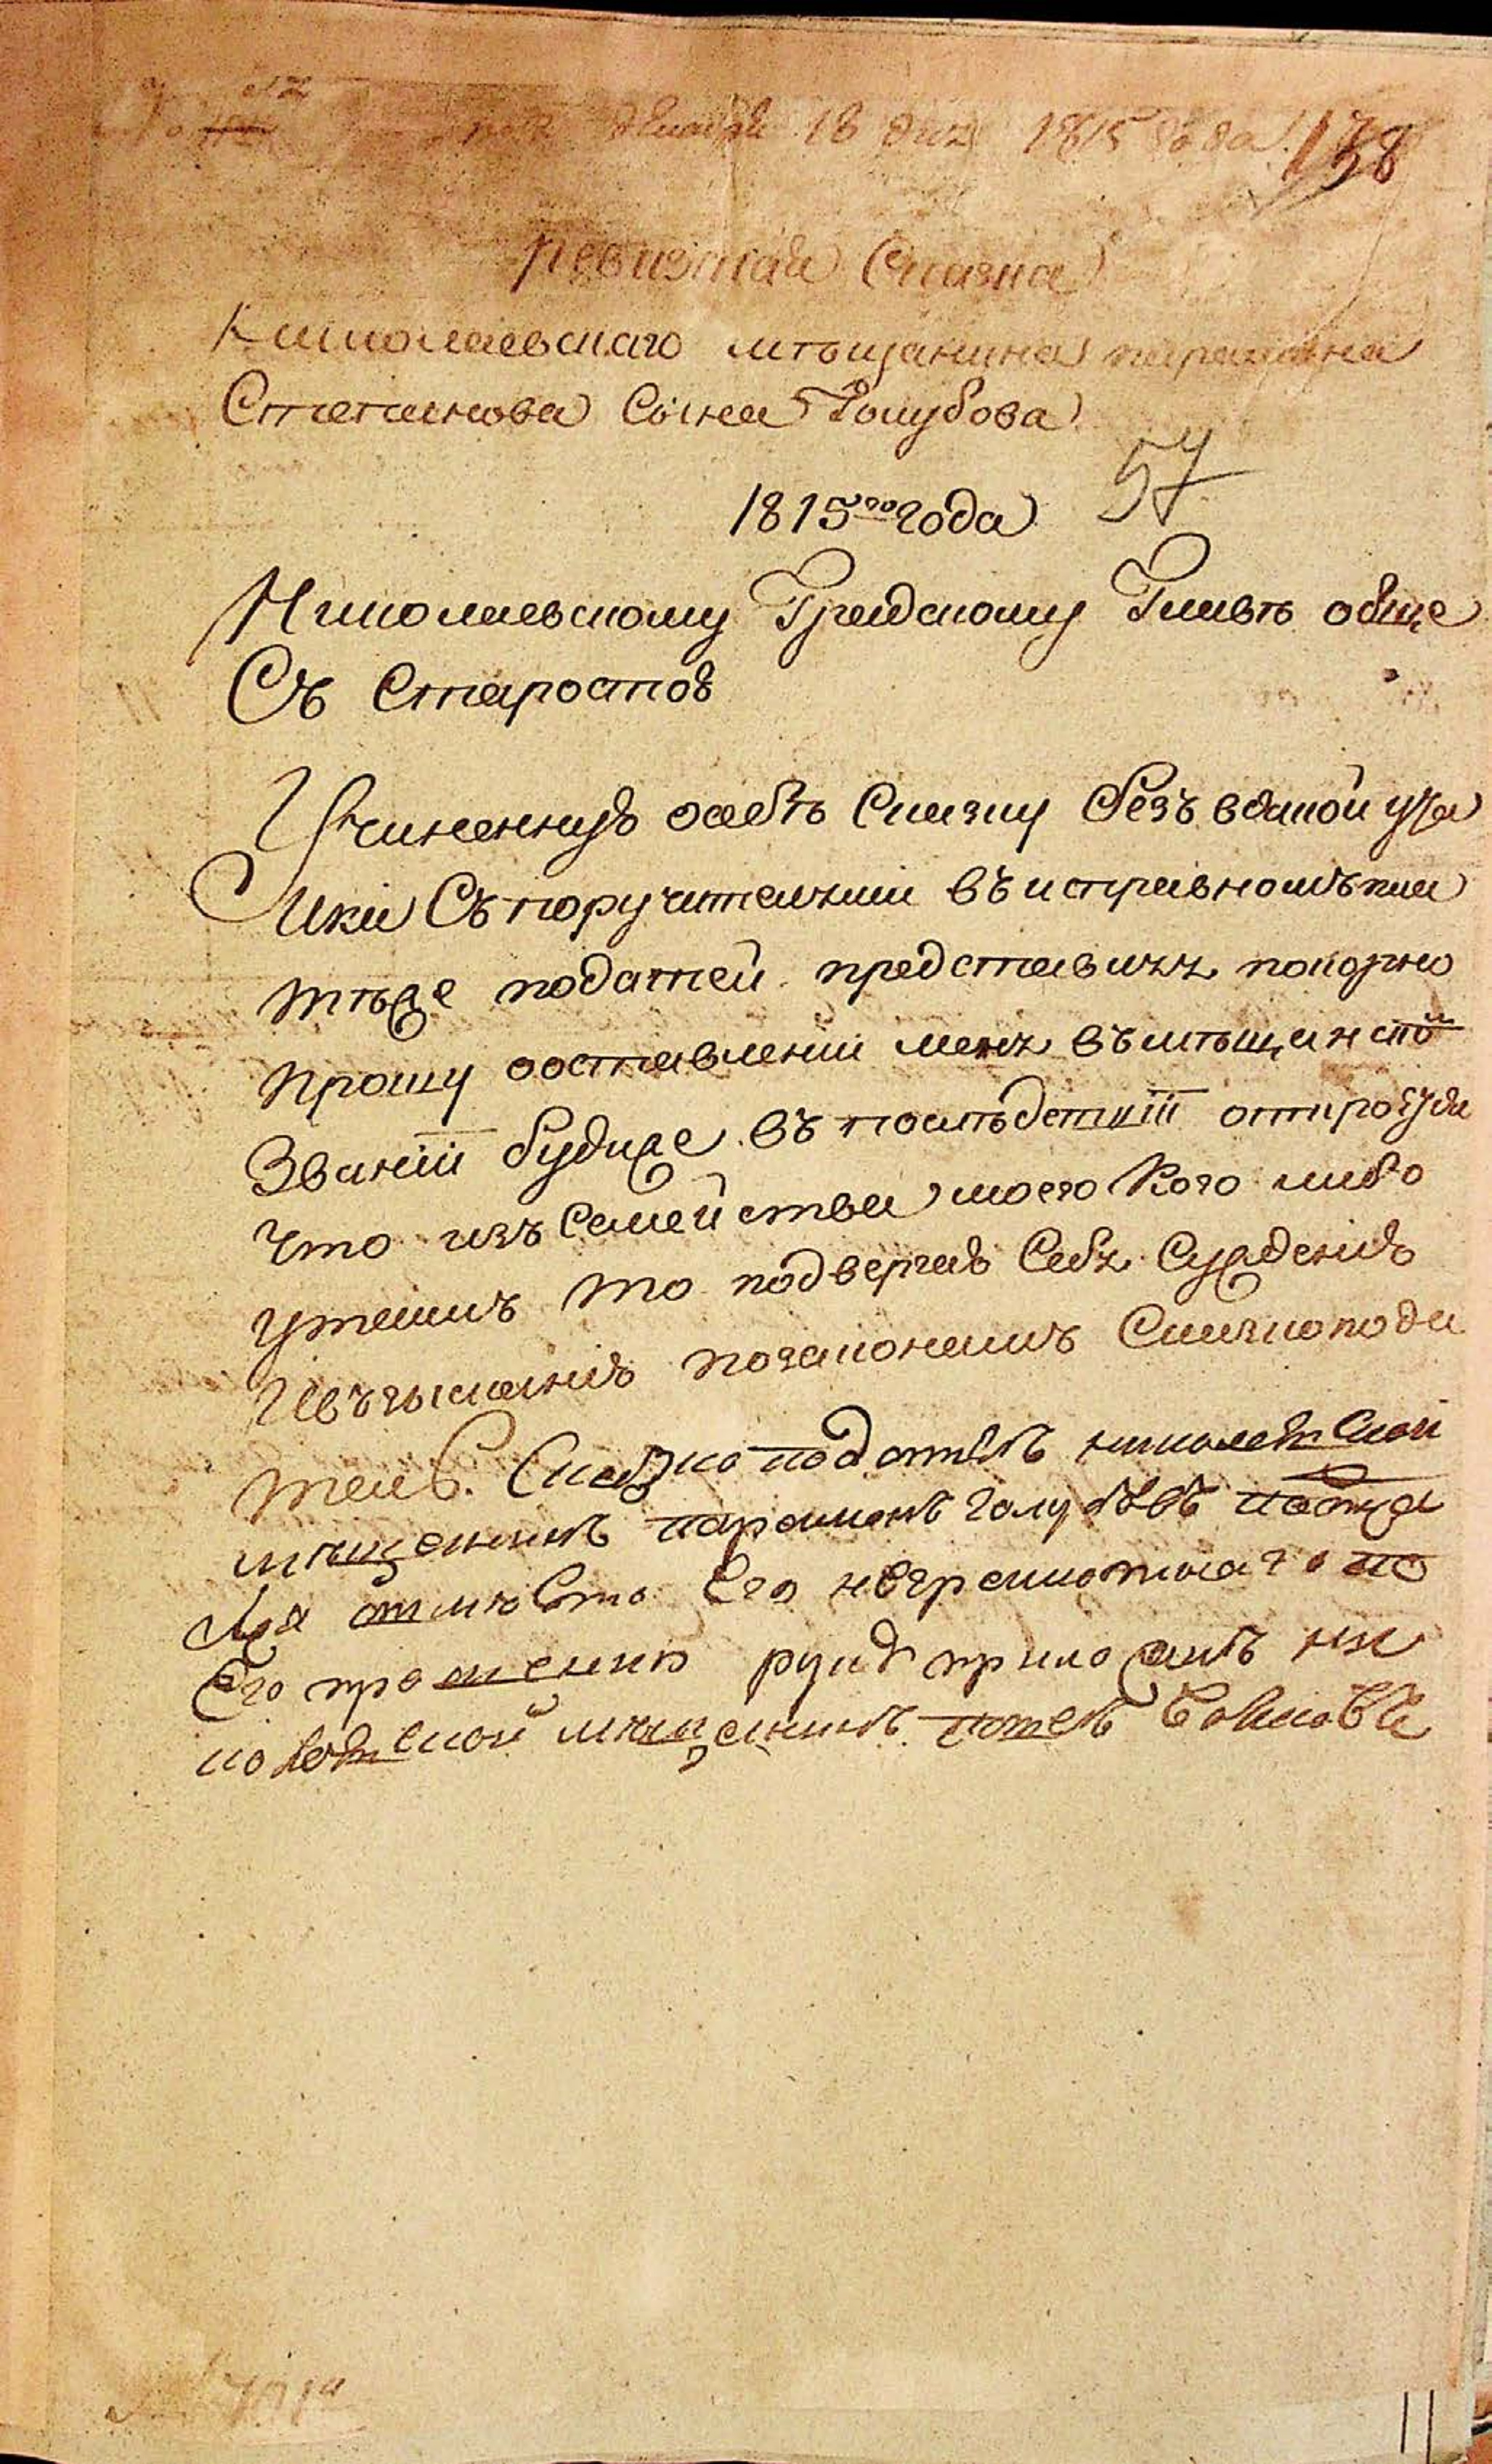 18 дня 1815 года 138
Ревизкая Сказка
Николаевскаго мѣщанина парамона
Степанова Сына Голубова
1815го года 57
Николаевскому Градскому Главѣ обще
Съ Старостою
Учиненную осебѣ Сказку безъ всякой ута
йки Съ поручителями въ исправномъ пла
тѣже податей представляя покорно
прошу ооставленіи меня въ мѣщанской
Званіи будеже въ послѣдствіи откроется
что изъ Семейства моего Кого либо
утаилъ то подвергаю Себя Сужденію
Ивзысканію позаконамъ Сказкопода
тель. Сказко податель николаевской
мещенинъ парамонъ голубовъ
вместо Его неграмотнаго по
Его прошению руку приложилъ ни
колаевской мещенинъ